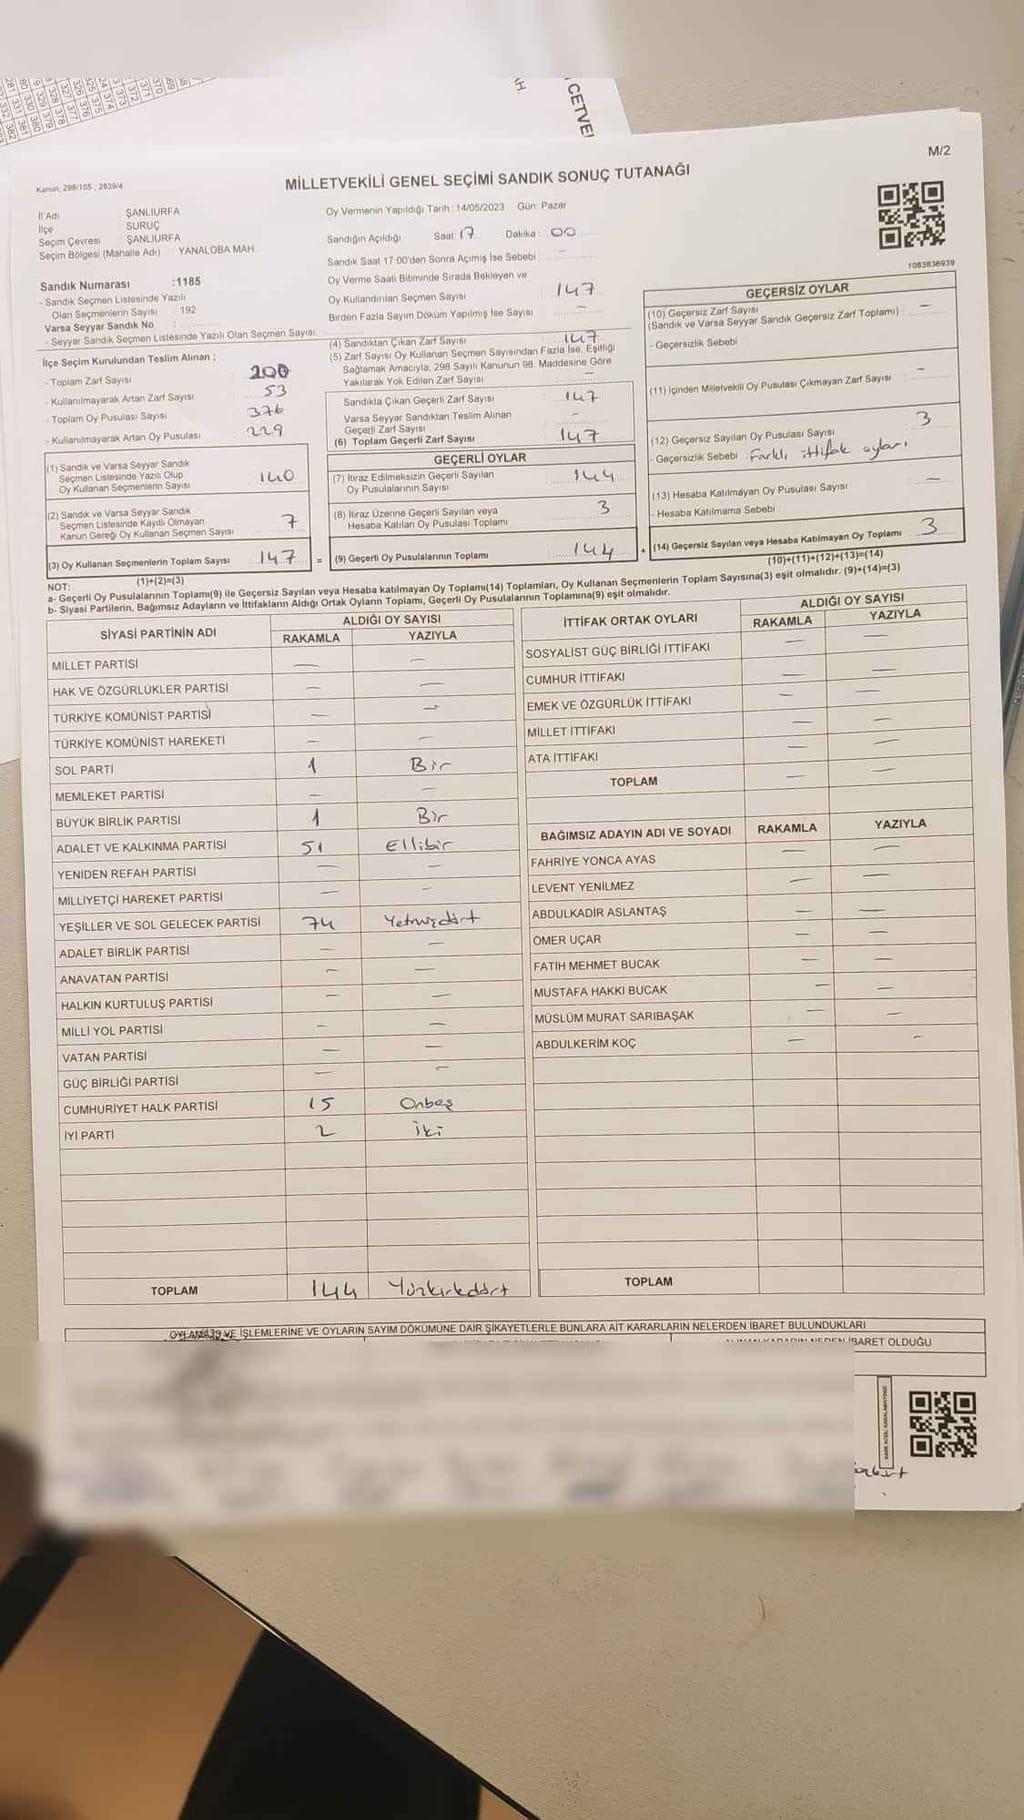 CETVE
M/2
Kanun: 298/105 ; 2839/4
MİLLETVEKİLİ GENEL SEÇİMİ SANDIK SONUÇ TUTANAĞI
İl Adı ŞANLIURFA
İlçe SURUÇ
Seçim Çevresi ŞANLIURFA
Seçim Bölgesi (Mahalle Adı) YANALOBA MAH.
Oy Vermenin Yapıldığı Tarih :14/05/2023 Gün: Pazar
Sandığın Açıldığı Saat 17 Dakika : 00
Sandık Saat 17:00'den Sonra Açımış İse Sebebi —
Oy Verme Saati Bitiminde Sırada Bekleyen ve
Oy Kullandırılan Seçmen Sayısı 147
Birden Fazla Sayım Döküm Yapılmış İse Sayısı —
1083836939
Sandık Numarası :1185
- Sandık Seçmen Listesinde Yazılı
Olan Seçmenlerin Sayısı : 192
Varsa Seyyar Sandık No :
- Seyyar Sandık Seçmen Listesinde Yazılı Olan Seçmen Sayısı:
İlçe Seçim Kurulundan Teslim Alınan ;
- Toplam Zarf Sayısı : 200
- Kullanılmayarak Artan Zarf Sayısı : 53
- Toplam Oy Pusulası Sayısı : 376
- Kullanılmayarak Artan Oy Pusulası : 229
(1) Sandık ve Varsa Seyyar Sandık
Seçmen Listesinde Yazılı Olup
Oy Kullanan Seçmenlerin Sayısı 140
(2) Sandık ve Varsa Seyyar Sandık
Seçmen Listesinde Kayıtlı Olmayan
Kanun Gereği Oy Kullanan Seçmen Sayısı 7
(3) Oy Kullanan Seçmenlerin Toplam Sayısı 147
(4) Sandıktan Çıkan Zarf Sayısı 147
(5) Zarf Sayısı Oy Kullanan Seçmen Sayısından Fazla İse, Eşitliği
Sağlamak Amacıyla, 298 Sayılı Kanunun 98. Maddesine Göre
Yakılarak Yok Edilen Zarf Sayısı —
Sandıkta Çıkan Geçerli Zarf Sayısı 147
Varsa Seyyar Sandıktan Teslim Alınan
Geçerli Zarf Sayısı —
(6) Toplam Geçerli Zarf Sayısı 147
GEÇERLİ OYLAR
(7) İtiraz Edilmeksizin Geçerli Sayılan
Oy Pusulalarının Sayısı 144
(8) İtiraz Üzerine Geçerli Sayılan veya
Hesaba Katılan Oy Pusulası Toplamı 3
= (9) Geçerli Oy Pusulalarının Toplamı 144
GEÇERSİZ OYLAR
(10) Geçersiz Zarf Sayısı —
(Sandık ve Varsa Seyyar Sandık Geçersiz Zarf Toplamı)
- Geçersizlik Sebebi
(11) İçinden Milletvekili Oy Pusulası Çıkmayan Zarf Sayısı —
(12) Geçersiz Sayılan Oy Pusulası Sayısı 3
- Geçersizlik Sebebi : Farklı ittifak oyları
(13) Hesaba Katılmayan Oy Pusulası Sayısı —
- Hesaba Katılmama Sebebi
+ (14) Geçersiz Sayılan veya Hesaba Katılmayan Oy Toplamı 3
(10)+(11)+(12)+(13)=(14)
NOT: (1)+(2)=(3)
a- Geçerli Oy Pusulalarının Toplamı(9) ile Geçersiz Sayılan veya Hesaba katılmayan Oy Toplamı(14) Toplamları, Oy Kullanan Seçmenlerin Toplam Sayısına(3) eşit olmalıdır. (9)+(14)=(3)
b- Siyasi Partilerin, Bağımsız Adayların ve İttifakların Aldığı Ortak Oyların Toplamı, Geçerli Oy Pusulalarının Toplamına(9) eşit olmalıdır.
SİYASİ PARTİNİN ADI ALDIĞI OY SAYISI
RAKAMLA YAZIYLA
MİLLET PARTİSİ — —
HAK VE ÖZGÜRLÜKLER PARTİSİ — —
TÜRKİYE KOMÜNİST PARTİSİ — —
TÜRKİYE KOMÜNİST HAREKETİ — —
SOL PARTİ 1 Bir
MEMLEKET PARTİSİ — —
BÜYÜK BİRLİK PARTİSİ 1 Bir
ADALET VE KALKINMA PARTİSİ 51 Ellibir
YENİDEN REFAH PARTİSİ — —
MİLLİYETÇİ HAREKET PARTİSİ — —
YEŞİLLER VE SOL GELECEK PARTİSİ 74 Yetmişdört
ADALET BİRLİK PARTİSİ — —
ANAVATAN PARTİSİ — —
HALKIN KURTULUŞ PARTİSİ — —
MİLLİ YOL PARTİSİ — —
VATAN PARTİSİ — —
GÜÇ BİRLİĞİ PARTİSİ — —
CUMHURİYET HALK PARTİSİ 15 Onbeş
İYİ PARTİ 2 İki
TOPLAM 144 Yüzkırkdört
İTTİFAK ORTAK OYLARI ALDIĞI OY SAYISI
RAKAMLA YAZIYLA
SOSYALİST GÜÇ BİRLİĞİ İTTİFAKI — —
CUMHUR İTTİFAKI — —
EMEK VE ÖZGÜRLÜK İTTİFAKI — —
MİLLET İTTİFAKI — —
ATA İTTİFAKI — —
TOPLAM — —
BAĞIMSIZ ADAYIN ADI VE SOYADI RAKAMLA YAZIYLA
FAHRİYE YONCA AYAS — —
LEVENT YENİLMEZ — —
ABDULKADİR ASLANTAŞ — —
ÖMER UÇAR — —
FATİH MEHMET BUCAK — —
MUSTAFA HAKKI BUCAK — —
MÜSLÜM MURAT SARIBAŞAK — —
ABDULKERİM KOÇ — —
TOPLAM
İŞLEMLERİNE VE OYLARIN SAYIM DÖKÜMÜNE DAİR ŞİKAYETLERLE BUNLARA AİT KARARLARIN NELERDEN İBARET BULUNDUKLARI
İBARET OLDUĞU